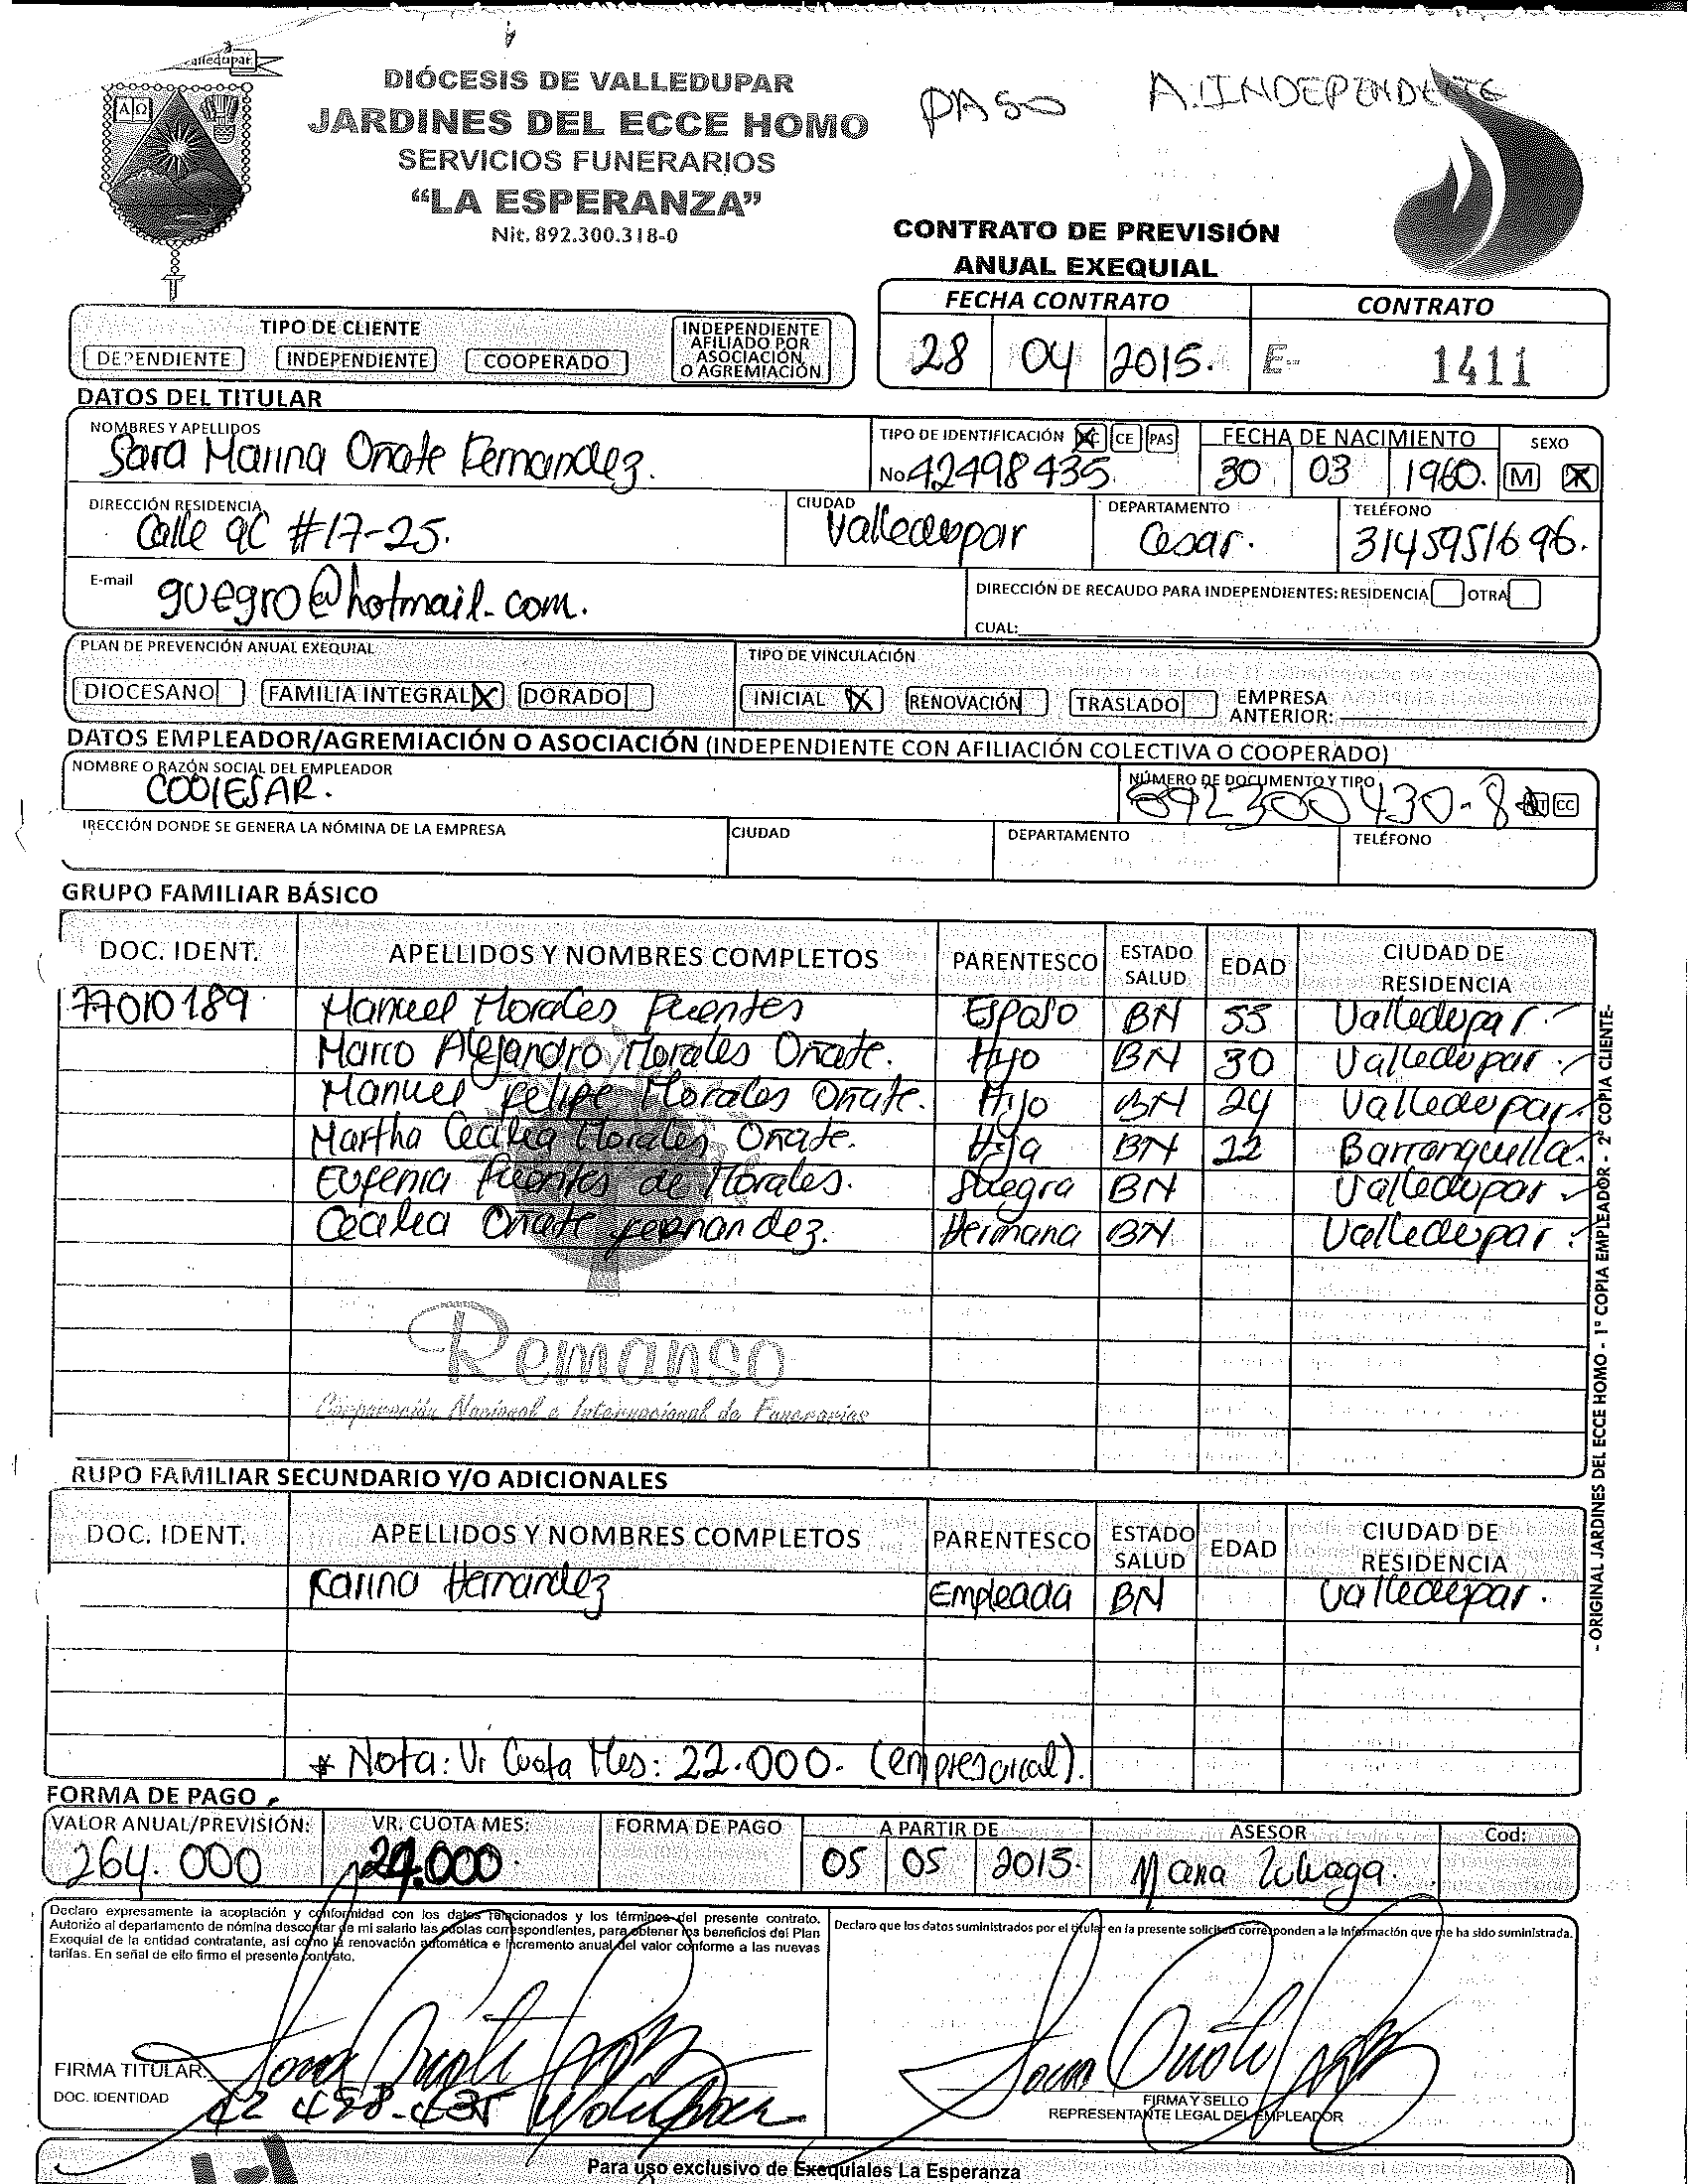 Valledupar
DIÓCESIS DE VALLEDUPAR
JARDINES DEL ECCE HOMO
SERVICIOS FUNERARIOS
“LA ESPERANZA”
Nit. 892.300.318-0
PASO A. INDEPENDENTE
CONTRATO DE PREVISIÓN
ANUAL EXEQUIAL
FECHA CONTRATO CONTRATO
28 04 2015. E- 1411
TIPO DE CLIENTE
DEPENDIENTE INDEPENDIENTE COOPERADO
INDEPENDIENTE
AFILIADO POR
ASOCIACIÓN
O AGREMIACIÓN
DATOS DEL TITULAR
NOMBRES Y APELLIDOS TIPO DE IDENTIFICACIÓN CC CE PAS FECHA DE NACIMIENTO SEXO
Sara Marina Oñate Fernandez. No. 42498435 30 03 1960. M X
DIRECCIÓN RESIDENCIA CIUDAD DEPARTAMENTO TELÉFONO
Calle 9C #17-25. Valledupar Cesar. 3145951696.
E-mail guegro@hotmail.com.
DIRECCIÓN DE RECAUDO PARA INDEPENDIENTES: RESIDENCIA OTRA
CUAL:
PLAN DE PREVENCIÓN ANUAL EXEQUIAL TIPO DE VINCULACIÓN
DIOCESANO FAMILIA INTEGRAL X DORADO INICIAL X RENOVACIÓN TRASLADO EMPRESA
ANTERIOR:
DATOS EMPLEADOR/AGREMIACIÓN O ASOCIACIÓN (INDEPENDIENTE CON AFILIACIÓN COLECTIVA O COOPERADO)
NOMBRE O RAZÓN SOCIAL DEL EMPLEADOR NÚMERO DE DOCUMENTO Y TIPO
COOIESAR. 892300430-8 NIT CC
IRECCIÓN DONDE SE GENERA LA NÓMINA DE LA EMPRESA CIUDAD DEPARTAMENTO TELÉFONO
GRUPO FAMILIAR BÁSICO
DOC. IDENT. APELLIDOS Y NOMBRES COMPLETOS PARENTESCO ESTADO SALUD EDAD CIUDAD DE RESIDENCIA
77010189 Manuel Morales Puentes Esposo BN 55 Valledupar.
Marco Alejandro Morales Oñate. Hijo BN 30 Valledupar.
Manuel Felipe Morales Oñate. Hijo BN 24 Valledupar
Martha Cecilia Morales Oñate. Hija BN 22 Barranquilla.
Eufenia Puentes de Morales. Suegra BN Valledupar
Cecilia Oñate Fernandez. Hermana BN Valledupar.
Remanso
Corporación Nacional e Internacional de Funerarias
RUPO FAMILIAR SECUNDARIO Y/O ADICIONALES
DOC. IDENT. APELLIDOS Y NOMBRES COMPLETOS PARENTESCO ESTADO SALUD EDAD CIUDAD DE RESIDENCIA
Karina Hernandez Empleada BN Valledupar.
* Nota: Vr Cuota Mes: 22.000. (empresarial).
FORMA DE PAGO
VALOR ANUAL/PREVISIÓN: VR. CUOTA MES: FORMA DE PAGO A PARTIR DE ASESOR Cod:
264.000 24.000. 05 05 2015. Maria Zuluaga.
Declaro expresamente la aceptación y conformidad con los datos relacionados y los términos del presente contrato.
Autorizo al departamento de nómina descontar de mi salario las cuotas correspondientes, para obtener los beneficios del Plan
Exequial de la entidad contratante, así como la renovación automática e incremento anual del valor conforme a las nuevas
tarifas. En señal de ello firmo el presente contrato.
Declaro que los datos suministrados por el titular en la presente solicitud corresponden a la información que me ha sido suministrada.
FIRMA TITULAR.
DOC. IDENTIDAD 42 498-435 Valledupar
FIRMA Y SELLO
REPRESENTANTE LEGAL DEL EMPLEADOR
Para uso exclusivo de Exequiales La Esperanza
- ORIGINAL JARDINES DEL ECCE HOMO - 1ª COPIA EMPLEADOR - 2ª COPIA CLIENTE-